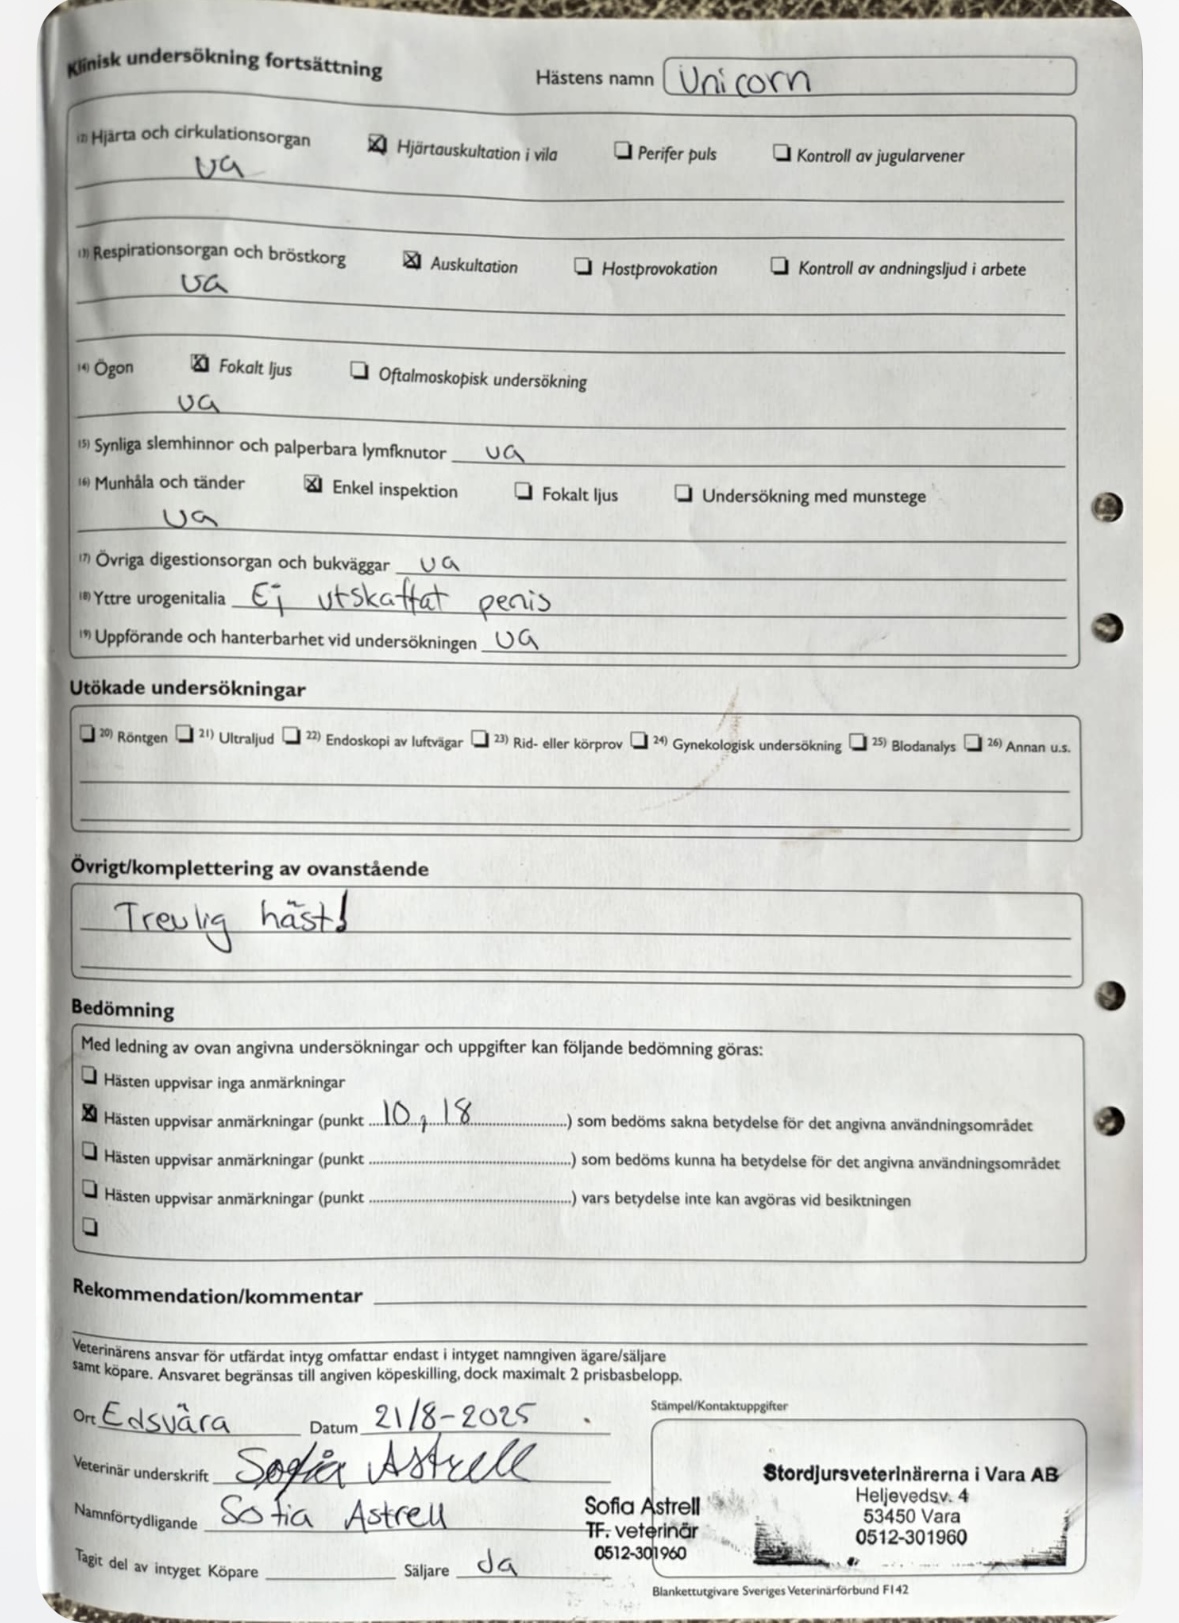 Klinisk undersökning fortsättning
Hästens namn Unicorn
12) Hjärta och cirkulationsorgan ☒ Hjärtauskultation i vila ☐ Perifer puls ☐ Kontroll av jugularvener
ua
13) Respirationsorgan och bröstkorg ☒ Auskultation ☐ Hostprovokation ☐ Kontroll av andningsljud i arbete
ua
14) Ögon ☒ Fokalt ljus ☐ Oftalmoskopisk undersökning
ua
15) Synliga slemhinnor och palperbara lymfknutor ua
16) Munhåla och tänder ☒ Enkel inspektion ☐ Fokalt ljus ☐ Undersökning med munstege
ua
17) Övriga digestionsorgan och bukväggar ua
18) Yttre urogenitalia Ej utskaffat penis
19) Uppförande och hanterbarhet vid undersökningen ua
Utökade undersökningar
☐ 20) Röntgen ☐ 21) Ultraljud ☐ 22) Endoskopi av luftvägar ☐ 23) Rid- eller körprov ☐ 24) Gynekologisk undersökning ☐ 25) Blodanalys ☐ 26) Annan u.s.
Övrigt/komplettering av ovanstående
Trevlig häst!
Bedömning
Med ledning av ovan angivna undersökningar och uppgifter kan följande bedömning göras:
☐ Hästen uppvisar inga anmärkningar
☒ Hästen uppvisar anmärkningar (punkt 10, 18) som bedöms sakna betydelse för det angivna användningsområdet
☐ Hästen uppvisar anmärkningar (punkt ) som bedöms kunna ha betydelse för det angivna användningsområdet
☐ Hästen uppvisar anmärkningar (punkt ) vars betydelse inte kan avgöras vid besiktningen
☐
Rekommendation/kommentar
Veterinärens ansvar för utfärdat intyg omfattar endast i intyget namngiven ägare/säljare
samt köpare. Ansvaret begränsas till angiven köpeskilling, dock maximalt 2 prisbasbelopp.
Ort Edsvära Datum 21/8-2025
Veterinär underskrift Sofia Astrell
Namnförtydligande Sofia Astrell
Tagit del av intyget Köpare Säljare Ja
Sofia Astrell
TF. veterinär
0512-301960
Stämpel/Kontaktuppgifter
Stordjursveterinärerna i Vara AB
Heljevedsv. 4
53450 Vara
0512-301960
Blankettutgivare Sveriges Veterinärförbund F142